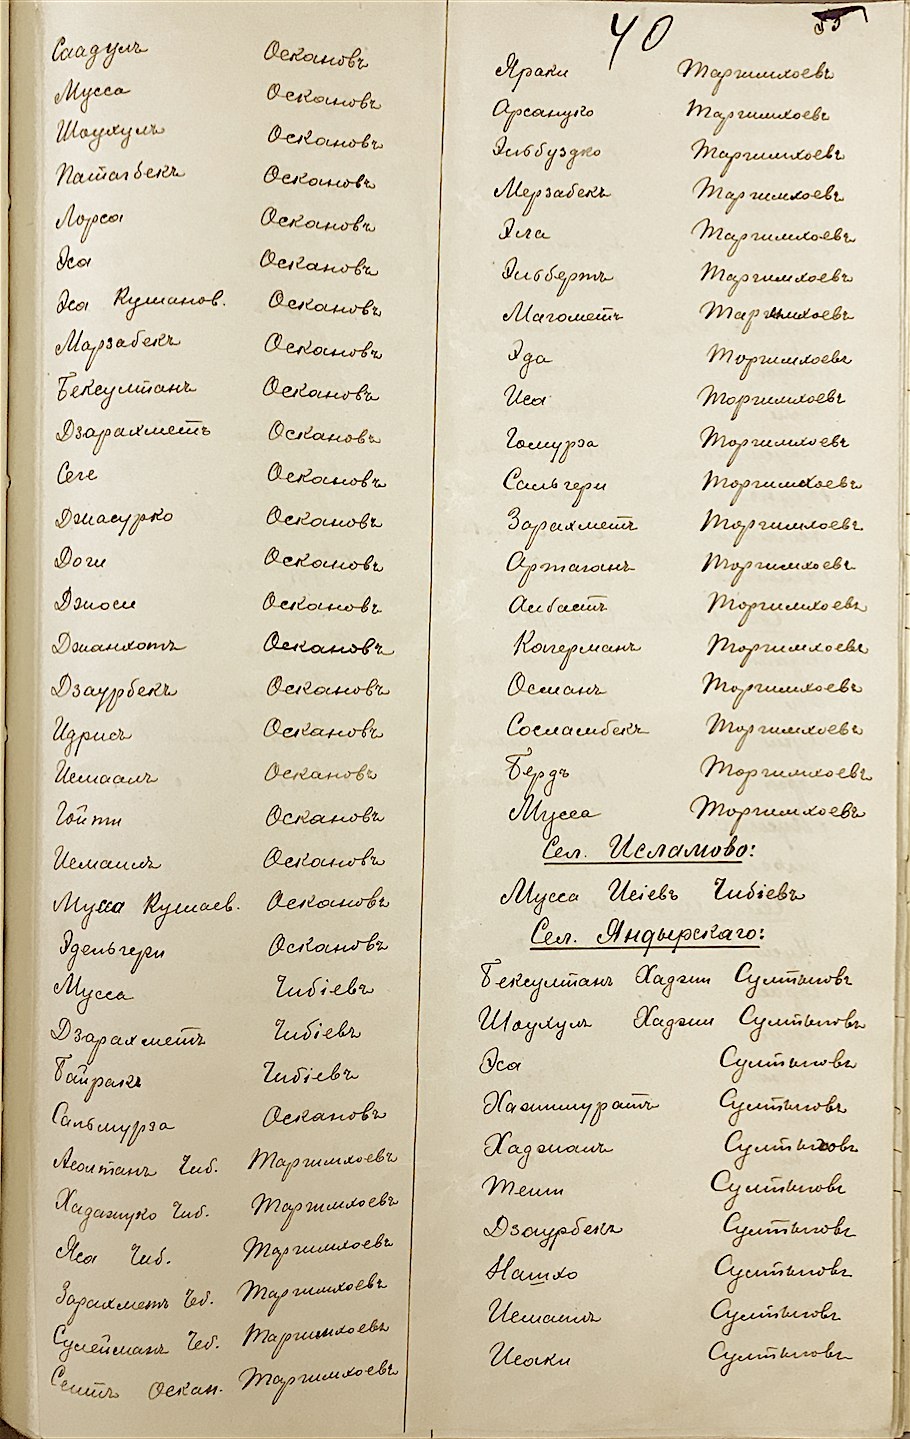 Саадулъ Оскановъ
Мусса Оскановъ
Шаухулъ Оскановъ
Паташбекъ Оскановъ
Лорса Оскановъ
Эса Оскановъ
Эса Кушанов. Оскановъ
Марзабекъ Оскановъ
Бексултанъ Оскановъ
Дзарахметъ Оскановъ
Сеге Оскановъ
Джасурко Оскановъ
Доги Оскановъ
Дзиоси Оскановъ
Джанхотъ Оскановъ
Дзаурбекъ Оскановъ
Идрисъ Оскановъ
Исмаалъ Оскановъ
Гойти Оскановъ
Исмаилъ Оскановъ
Мусса Кушаев. Оскановъ
Эдельгери Оскановъ
Мусса Чибіевъ
Дзарахметъ Чибіевъ
Байракъ Чибіевъ
Сальмурза Оскановъ
Асолтанъ Чиб. Таргимхоевъ
Хадажуко Чиб. Таргимхоевъ
Яса Чиб. Таргимхоевъ
Зарахметъ Чеб. Таргимхоевъ
Сулейманъ Чеб. Таргимхоевъ
Сеитъ Оскан. Таргимхоевъ
40
55
Яраки Таргимхоевъ
Арсануко Таргимхоевъ
Эльбуздко Таргимхоевъ
Мерзабекъ Таргимхоевъ
Эла Таргимхоевъ
Эльбертъ Таргимхоевъ
Магометъ Таргимхоевъ
Эда Торгимхоевъ
Иса Торгимхоевъ
Гомурза Торгимхоевъ
Сальгери Торгимхоевъ
Зарахметъ Торгимхоевъ
Артаганъ Торгимхоевъ
Албастъ Торгимхоевъ
Кагерманъ Торгимхоевъ
Османъ Торгимхоевъ
Сосламбекъ Торгимхоевъ
Бердъ Торгимхоевъ
Мусса Торгимхоевъ
Сел. Исламово:
Мусса Исіевъ Чибіевъ
Сел. Яндырскаго:
Бексултанъ Хаджи Султыговъ
Шаухулъ Хаджи Султыговъ
Эса Султыговъ
Хажимуратъ Султыговъ
Хаджалъ Султыговъ
Теши Султыговъ
Дзаурбекъ Султыговъ
Нашхо Султыговъ
Исмаилъ Султыговъ
Исаки Султыговъ